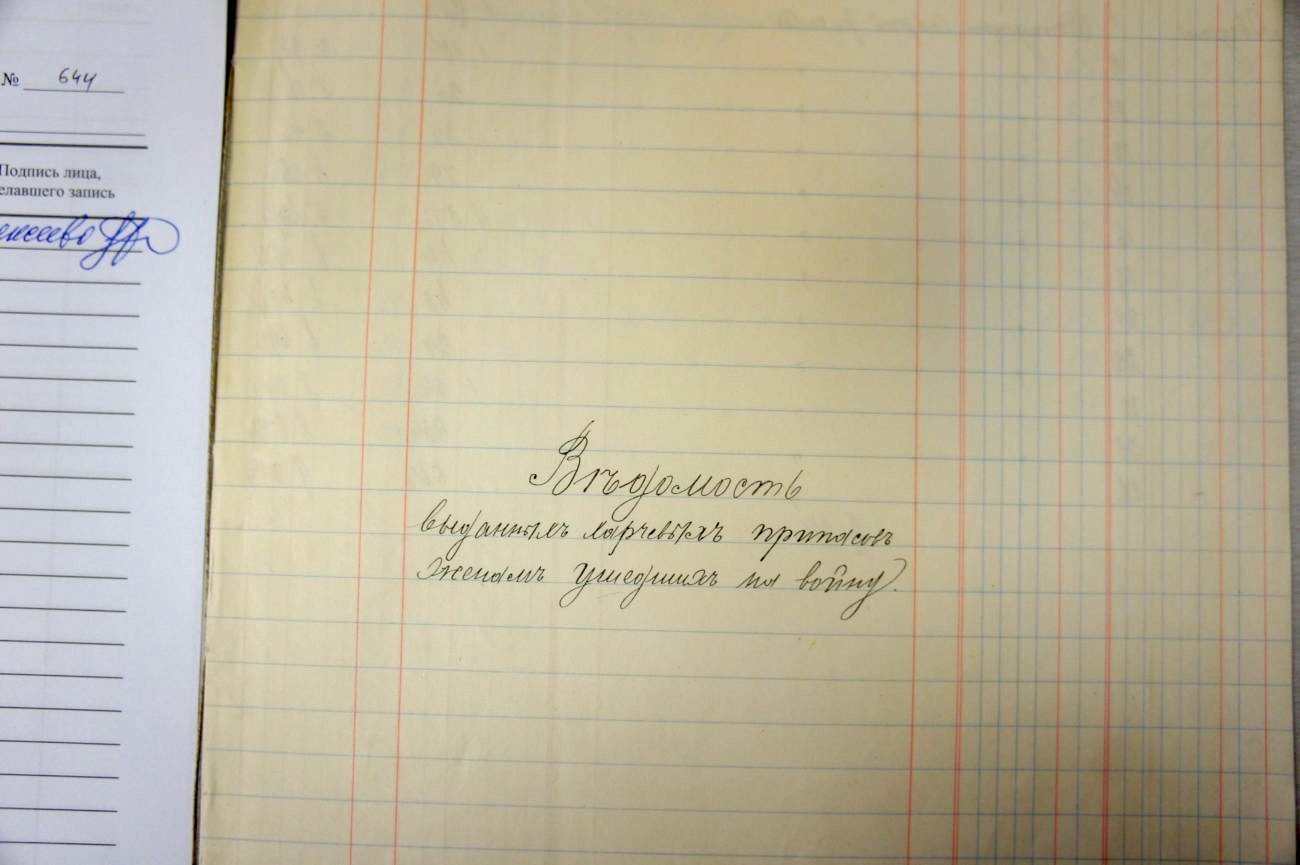 № 644
Подпись лица,
елавшего запись
Вѣдомость
выданнымъ харчевыхъ припасовъ
женамъ ушедшихъ на войну.